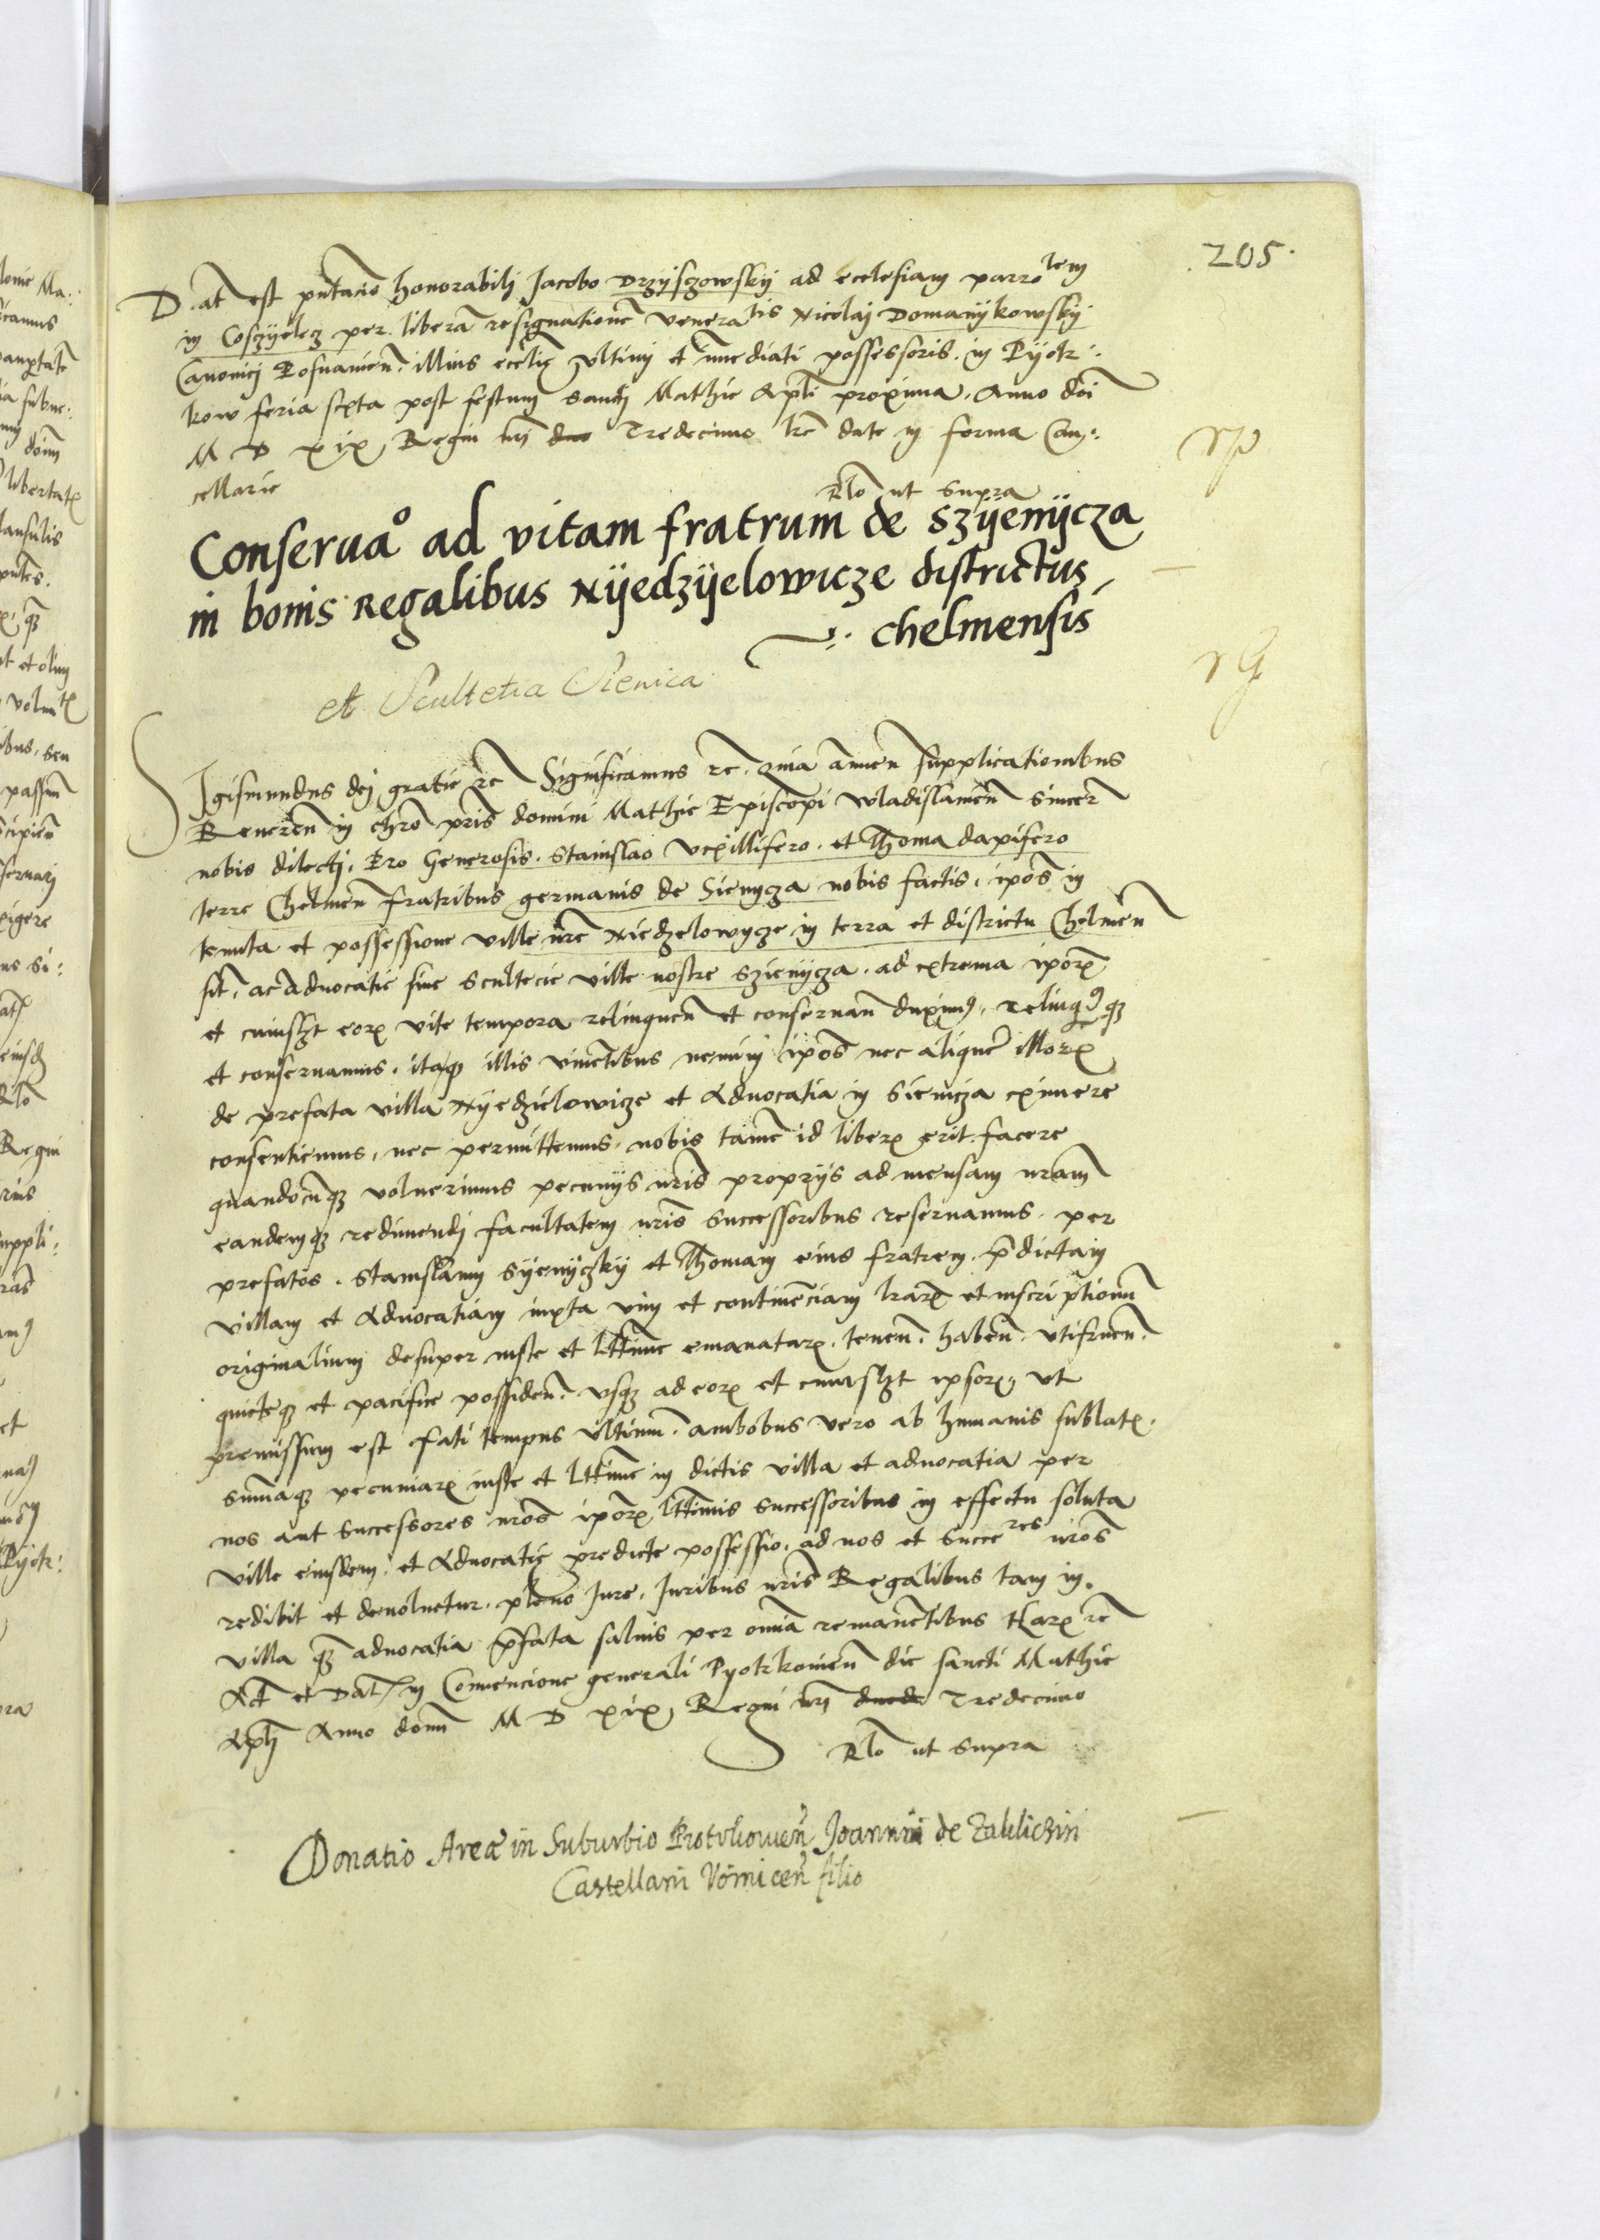 205.
Dat est pntacio honorabilj Jacobo Drzyszowskij ad ecclesiam parrolem
in Coszyelecz per liberam resignationem veneralis Nicolaj Domanijkowskij
Canonicj Posnamen. illius ecclie vltimj et immediati possessoris. in Pijotr:
kow feria sexta post festum Sancti Mathie Apli proxima. Anno doi
M D xix Regni nrj duo Tredecimo lre date in forma Can:
cellarie
Rlo ut supra
Conserua° ad vitam fratrum de Szijenijcza
in bonis Regalibus Nijedzijelowicze districtus
chelmensis
et Scultetia Sienica
Sigismundus dej gratie rc Significamus rc. Quia attnen supplicationibus
Reueren in chro pris domini Mathie Episcopi Wladislauien sincere
nobis dilectj. Pro Generosis. Stanislao vexillifero. et Thoma dapifero
terre Chelmen fratribus germanis de Sienycza nobis factis. ipos in
tenuta et possessione ville nre Niedzelowycze in terra et districtu Chelmen
sit. ac Aduocatie siue Scultecie ville nostre Szienijcza. ad extrema ipor
et cuiuslzt eor vite tempora relinquen et conseruan duxim9. relinquim9q
et conseruamus. itaq illis viuentibus nemini ipos nec aliquem illor
de prefata villa Nyedzielowicze et Aduocatia in Sienicza eximere
consentiemus. nec permittemus. nobis tame id liber erit facere
quandocunq voluerimus pecunijs nris proprijs ad mensam nram
eandemq redimendj facultatem nris Successoribus reseruamus. per
prefatos. Stanislaum Syenijczky et Thomam eius fratrem. pdictam
villam et Aduocatiam iuxta vim et continenciam lrar et inscriptionu
originalium desuper iuste et lttime emanatar. tenen. haben. vtifruen.
quieteq et pacifice possiden. vsq ad eor et cuiuslzt ipsor, vt
premissum est fati tempus vltimu. ambobus vero ab humanis sublat.
summaq pecuniar iuste et lttime in dictis villa et aduocatia per
nos aut Successores nros ipor lttimis Successoribus in effectu soluta
ville eiusdem. et Aduocatie predicte possessio. ad nos et Succeres nros
redibit et deuoluetur. pleno Jure. Juribus nris Regalibus tam in
villa q aduocatia pfata saluis per omia remanetibus Har rc
Act et Dat in Conuencione generali Pyotrkouien die sancti Mathie
Aplj Anno domi M D xix, Regni nrj Tredecimo
Rlo ut supra
Donatio Areae in Suburbio Piotrkowien Joannis de Zaklichin
Castellani Voinicen filio